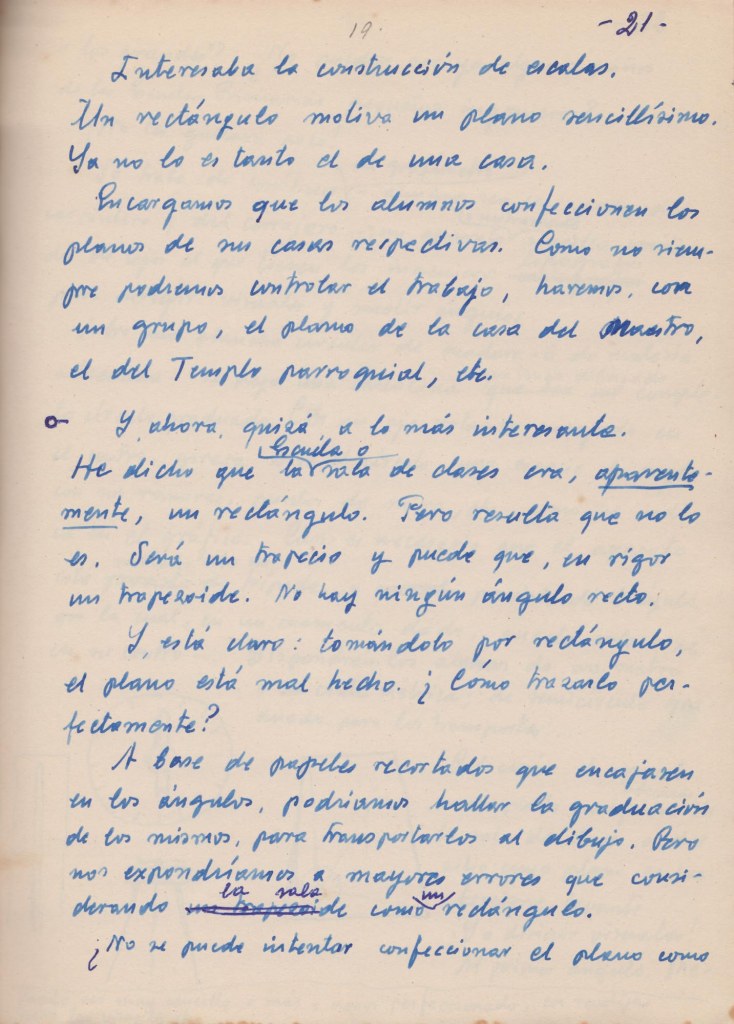 19.
-21-
Interesaba la construcción de escalas.
Un rectángulo motiva un plano sencillísimo.
Ya no lo es tanto el de una casa.
Encargamos que los alumnos confeccionen los
planos de sus casas respectivas. Como no siem-
pre podremos controlar el trabajo, haremos, con
un grupo, el plano de la casa del Maestro,
el del Templo parroquial, etc.
Y, ahora, quizá, a lo más interesante.
Escuela o
He dicho que la sala de clases era, aparente-
mente, un rectángulo. Pero resulta que no lo
es. Será un trapecio y puede que, en rigor
un trapezoide. No hay ningún ángulo recto.
Y, está claro: tomándolo por rectángulo,
el plano está mal hecho. ¿Cómo trazarlo per-
fectamente?
A base de papeles recortados que encajasen
en los ángulos, podríamos hallar la graduación
de los mismos, para transportarlos al dibujo. Pero
nos expondríamos a mayores errores que consi-
la sala un
derando un trapezoide como rectángulo.
¿No se puede intentar confeccionar el plano como